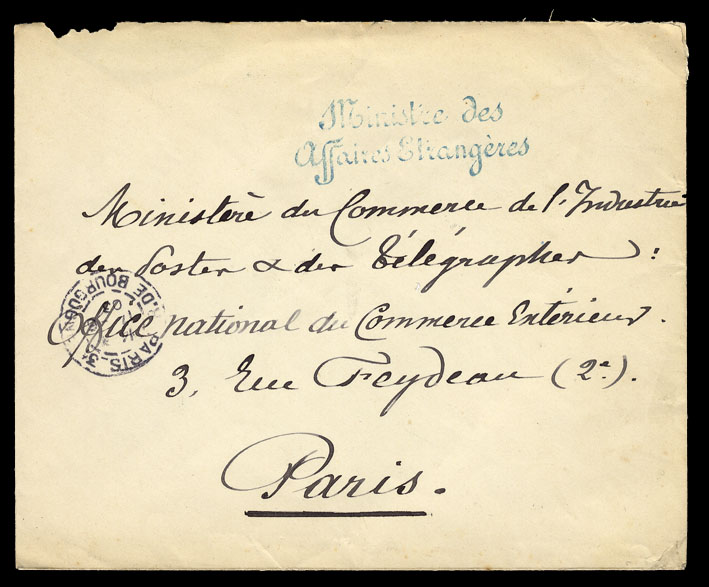 Ministre des
Affaires Etrangères
Ministère du Commerce de l'Industrie
des Postes & des Télégraphes :
Office national du Commerce Extérieur.
3, Rue Feydeau (2e).
Paris.
PARIS
R. DE BOURGOGNE